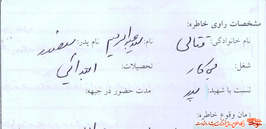 مشخصات راوی خاطره:
نام خانوادگی: قتالی نام: سید عبدالرحیم نام پدر: سید
شغل: تحصیلات: ابتدائی
نسبت با شهید: پدر مدت حضور در جبهه:
زمان وقوع خاطره: